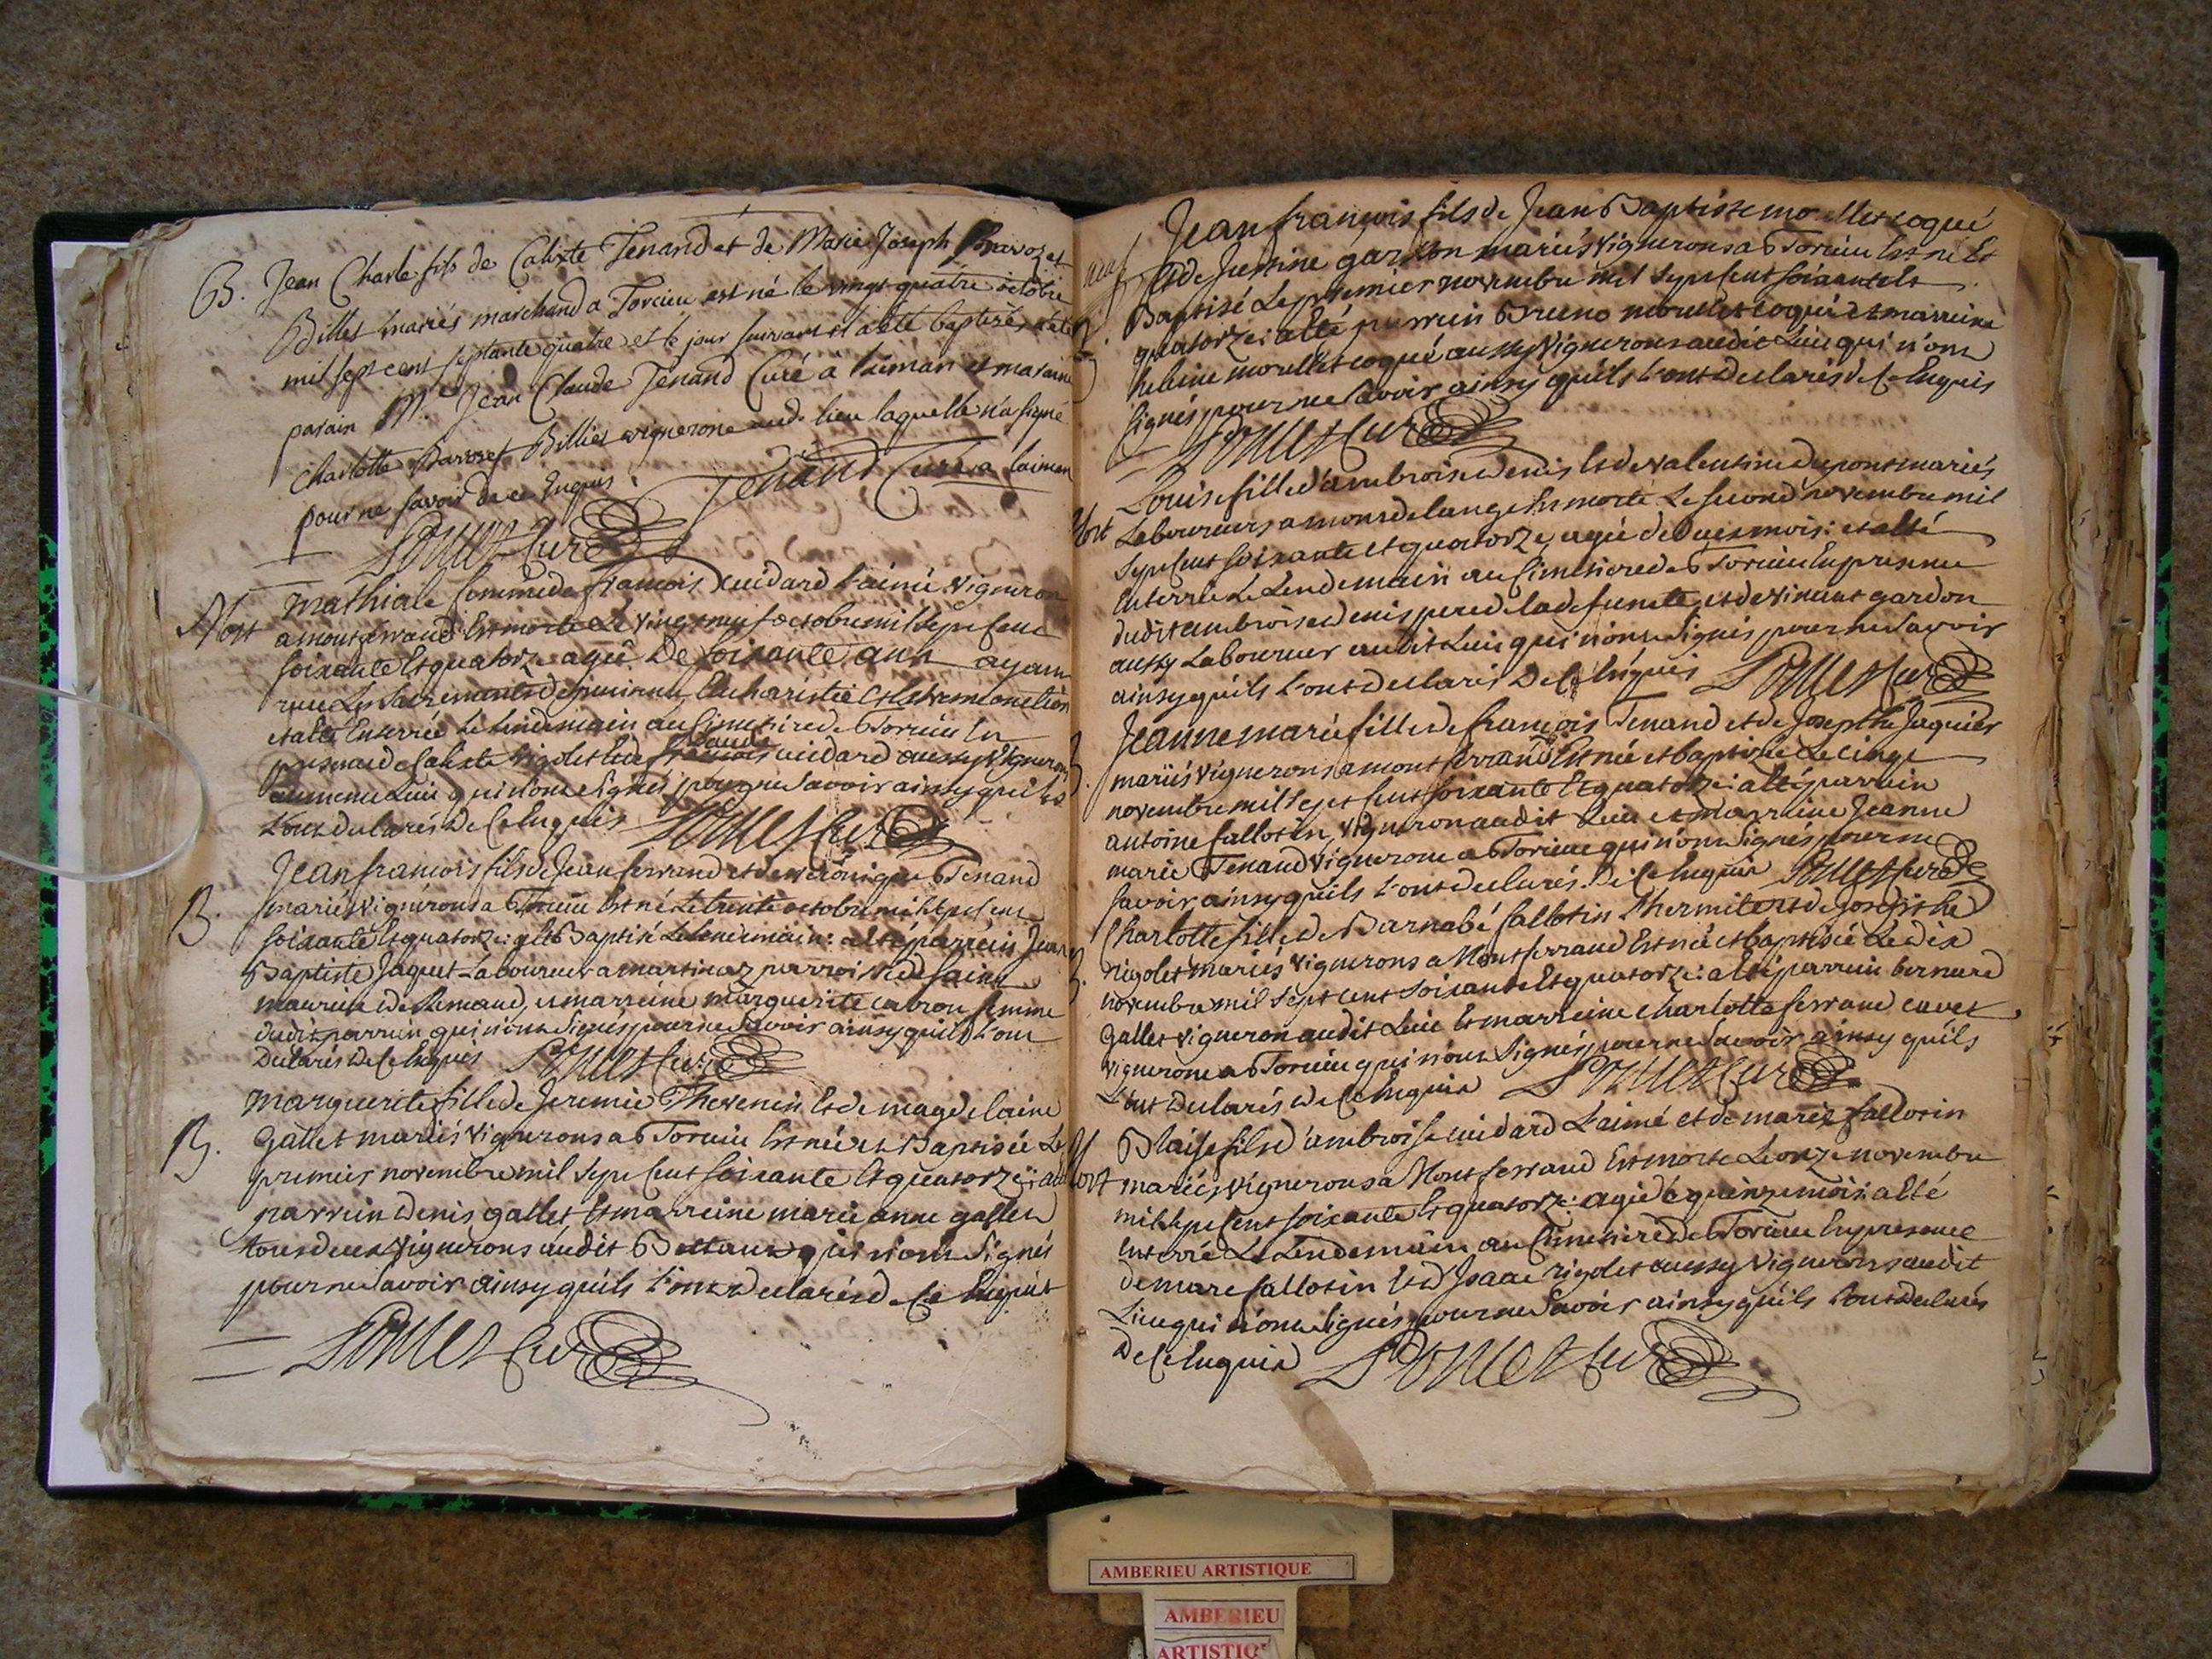 B. Jean Charle fils de Calixte Tenand et de Marie Joseph Bavozet
Billiet mariés marchand a Torcieu est né le vingt quatre octobre
mil sept cent septante quatre et le jour suivant il a eté baptisé
parain Mr Jean Claude Tenand Curé à laiman et maraine
Charlotte Bavozet Billiet vignerone aud. lieu laquelle n'a signé
pour ne savoir de ce Enquis. Tenand Curé a laiman
Curé
Mort Mathiale femme de françois cuidard L'ainé vigneron
a montferrand Est morte Le vingt neuf octobre mil sept Cent
soixante Et quatorze agée De soixante ans ayant
reçu Les sacrements de penitence Eucharistie Et Extreme onction
et a Eté Enterrée Le lendemain au Cimetiere de Torcieu En
presence de Calixte rigolet Et de claude cuidard aussy vignerons
au meme Lieu qui n'ont signés pour ne savoir ainsy qu'ils
L'ont declarés De Ce Enquis Curé
Jean françois fils de Jean ferrand et de veronique Tenand
B. mariés vignerons a Torcieu Est né Le trente octobre mil sept cent
soixante Et quatorze et Baptisé Le lendemain: a Eté parrein Jean
Baptiste Jaquet Laboureur a martinaz parroisse de saint
maurice de Remand, et marreine marguerite cabrou femme
dudit parrein qui n'ont signés pour ne savoir ainsy qu'ils L'ont
Declarés De Ce Enquis Curé
Marguerite fille de Jeremie Thevenin Et de magdelaine
B. Gallet mariés vignerons a Torcieu Est née et Baptisée Le
premier novembre mil sept Cent soixante Et quatorze: a Eté
parrein denis gallet Et marreine marie anne gallet
tous deux vignerons audit qui n'ont signés
pour ne savoir ainsy qu'ils L'ont declarés de Ce Enquis
Curé
Jean françois fils de Jean Baptiste morellet coqué
Et de Justine gardon mariés vignerons a Torcieu Est né Et
B. Baptisé Le premier novembre mil sept Cent soixante Et
quatorze: a Eté parrein Bruno morellet coqué et marreine
helaine morellet coqué aussy vignerons audit Lieu qui n'ont
signés pour ne savoir ainsy qu'ils L'ont declarés de Ce Enquis
Curé
Louise fille d'ambroise denis Et de valentine dupont mariés
Mort Laboureurs a montdelange Est morte Le second novembre mil
sept Cent soixante et quatorze agée de deux mois: et a Eté
Enterrée Le Lendemain au Cimetiere de Torcieu En presence
dudit ambroise denis pere de la defunete, et de vincent gardon
aussy Laboureur audit Lieu qui n'ont signés pour ne savoir
ainsy qu'ils L'ont declarés De Ce Enquis Curé
Jeanne marie fille de françois Tenand et de Josephthe Jaquier
B. mariés vignerons a montferrand Est née et baptisée Le cinq
novembre mil sept Cent soixante Et quatorze: a Eté parrein
antoine fallotin, vigneron audit Lieu et marreine Jeanne
marie Tenand vignerone a Torcieu qui n'ont signés pour ne
savoir ainsy qu'ils L'ont declarés. De Ce Enquis Curé
Charlotte fille de Barnabé fallotin Lhermite et de Josephthe
B. rigolet mariés vignerons a Montferrand Est née et baptisée Le dix
novembre mil sept cent soixante Et quatorze: a Eté parrein bernard
Gallet vigneron audit Lieu Et marreine charlotte ferrand cavet
vignerone a Torcieu qui n'ont signés pour ne savoir ainsy qu'ils
L'ont declarés de Ce Enquis Curé
Blaise fils d'ambroise cuidard L'ainé et de marie fallotin
Mort mariés vignerons a Montferrand Est morte Le onze novembre
mil sept Cent soixante Et quatorze: agé de quinze mois: a Eté
Enterré Le Lendemain au Cimetiere de Torcieu En presence
de marc fallotin Et d'Isaac rigolet aussy vignerons audit
Lieu qui n'ont signés pour ne savoir ainsy qu'ils L'ont declarés
De Ce Enquis Curé
AMBERIEU ARTISTIQUE
AMBERIEU
ARTISTIQ